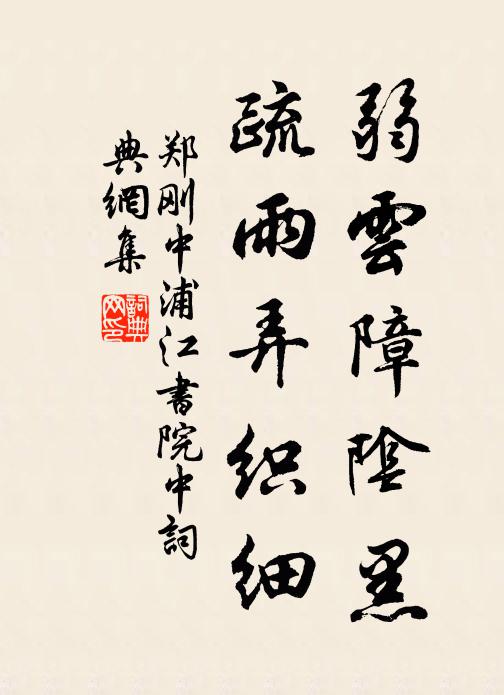 弱雲障陰黑
疏雨弄织细
郑刚中浦江書院中詞
典網集
詞典网印